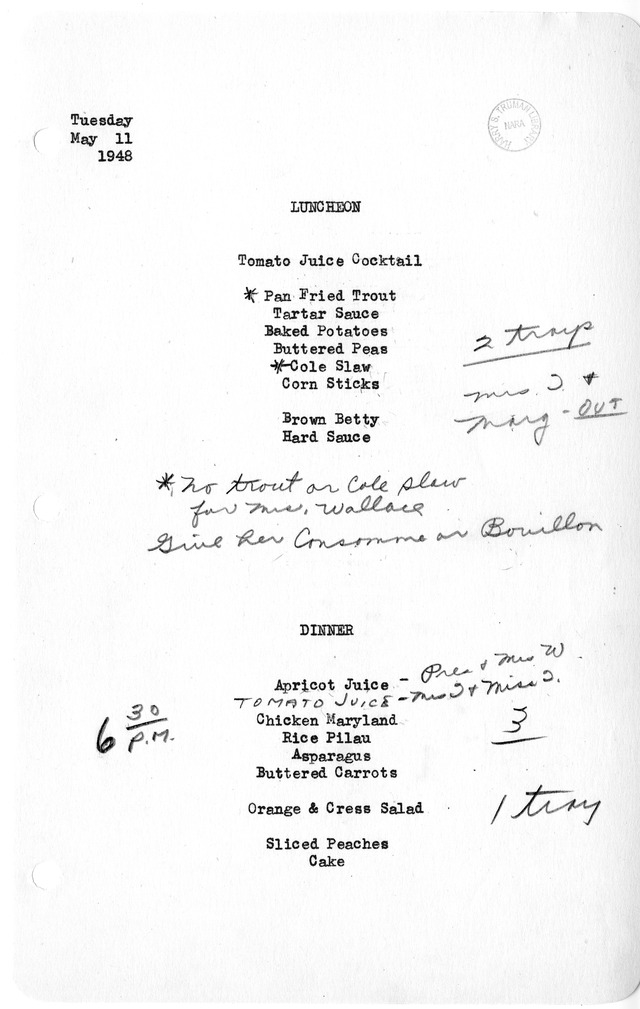 Tuesday
May 11
1948
HARRY S. TRUMAN LIBRARY
NARA
LUNCHEON
Tomato Juice Cocktail
* Pan Fried Trout
Tartar Sauce
Baked Potatoes
Buttered Peas
* Cole Slaw
Corn Sticks
2 trays
Mrs. T. +
Marg - OUT
Brown Betty
Hard Sauce
* No trout or Cole Slaw
for Mrs. Wallace
Give her Consomme or Bouillon
DINNER
Apricot Juice - Pres + Mrs W
TOMATO JUICE - Mrs T + Miss T.
6 30 P.M.
Chicken Maryland
3
Rice Pilau
Asparagus
Buttered Carrots
Orange & Cress Salad
1 tray
Sliced Peaches
Cake